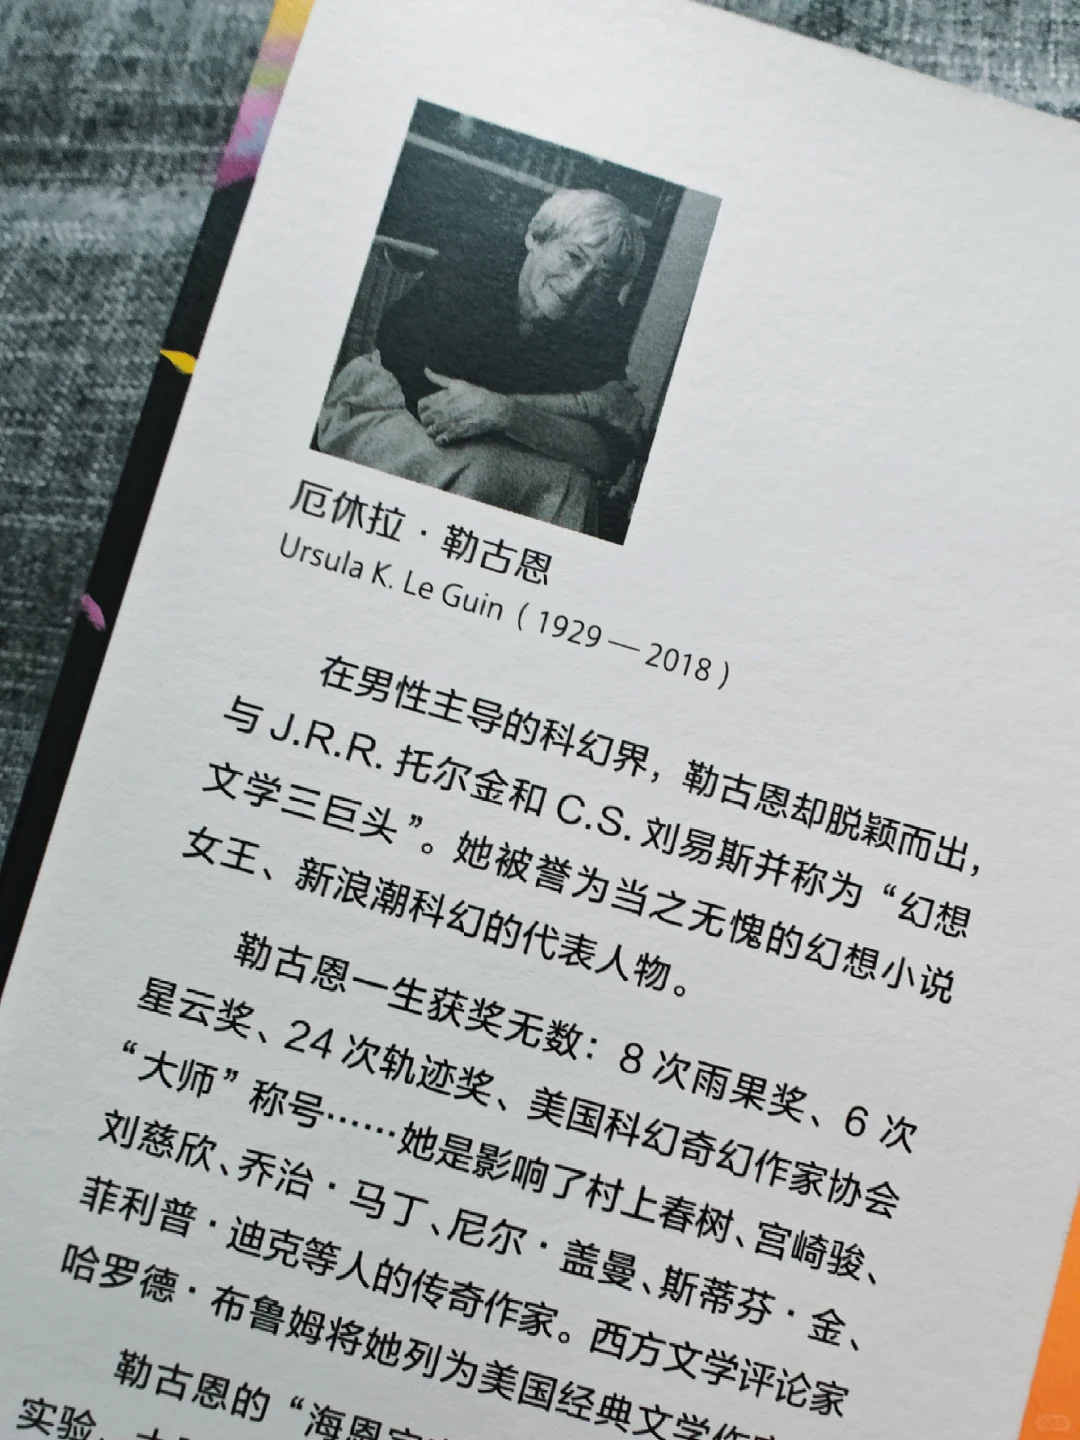 厄休拉·勒古恩
Ursula K. Le Guin（1929—2018）
在男性主导的科幻界，勒古恩却脱颖而出，
与 J.R.R. 托尔金和 C.S. 刘易斯并称为“幻想
文学三巨头”。她被誉为当之无愧的幻想小说
女王、新浪潮科幻的代表人物。
勒古恩一生获奖无数：8 次雨果奖、6 次
星云奖、24 次轨迹奖、美国科幻奇幻作家协会
“大师”称号……她是影响了村上春树、宫崎骏、
刘慈欣、乔治·马丁、尼尔·盖曼、斯蒂芬·金、
菲利普·迪克等人的传奇作家。西方文学评论家
哈罗德·布鲁姆将她列为美国经典文学作
勒古恩的“海恩
实验、